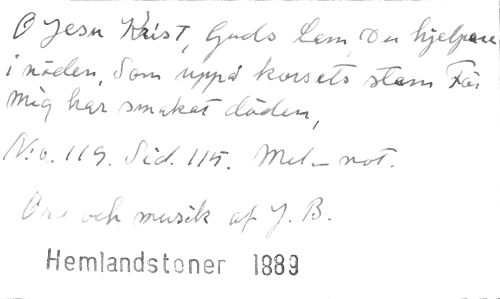 O Jesu Krist, Guds Lam, Du hjelpare
i nöden, Som uppå korsets stam För
mig har smakat döden,
N:o. 119. Sid. 115. Mel. not.
Ord och musik af J. B.
Hemlandstoner 1889